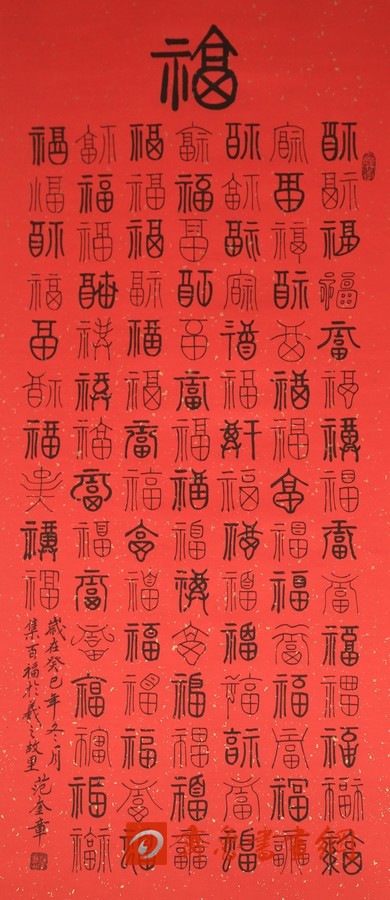 福
福福福福福福福福福福福福福福福
福福福福福福福福福福福福福福福
福福福福福福福福福福福福福福福
福福福福福福福福福福福福福福福
福福福福福福福福福福福福福福福
福福福福福福福福福福福福福福福
福福福福福福福福福福
歲在癸巳年冬月
集百福於羲之故里 范奎章